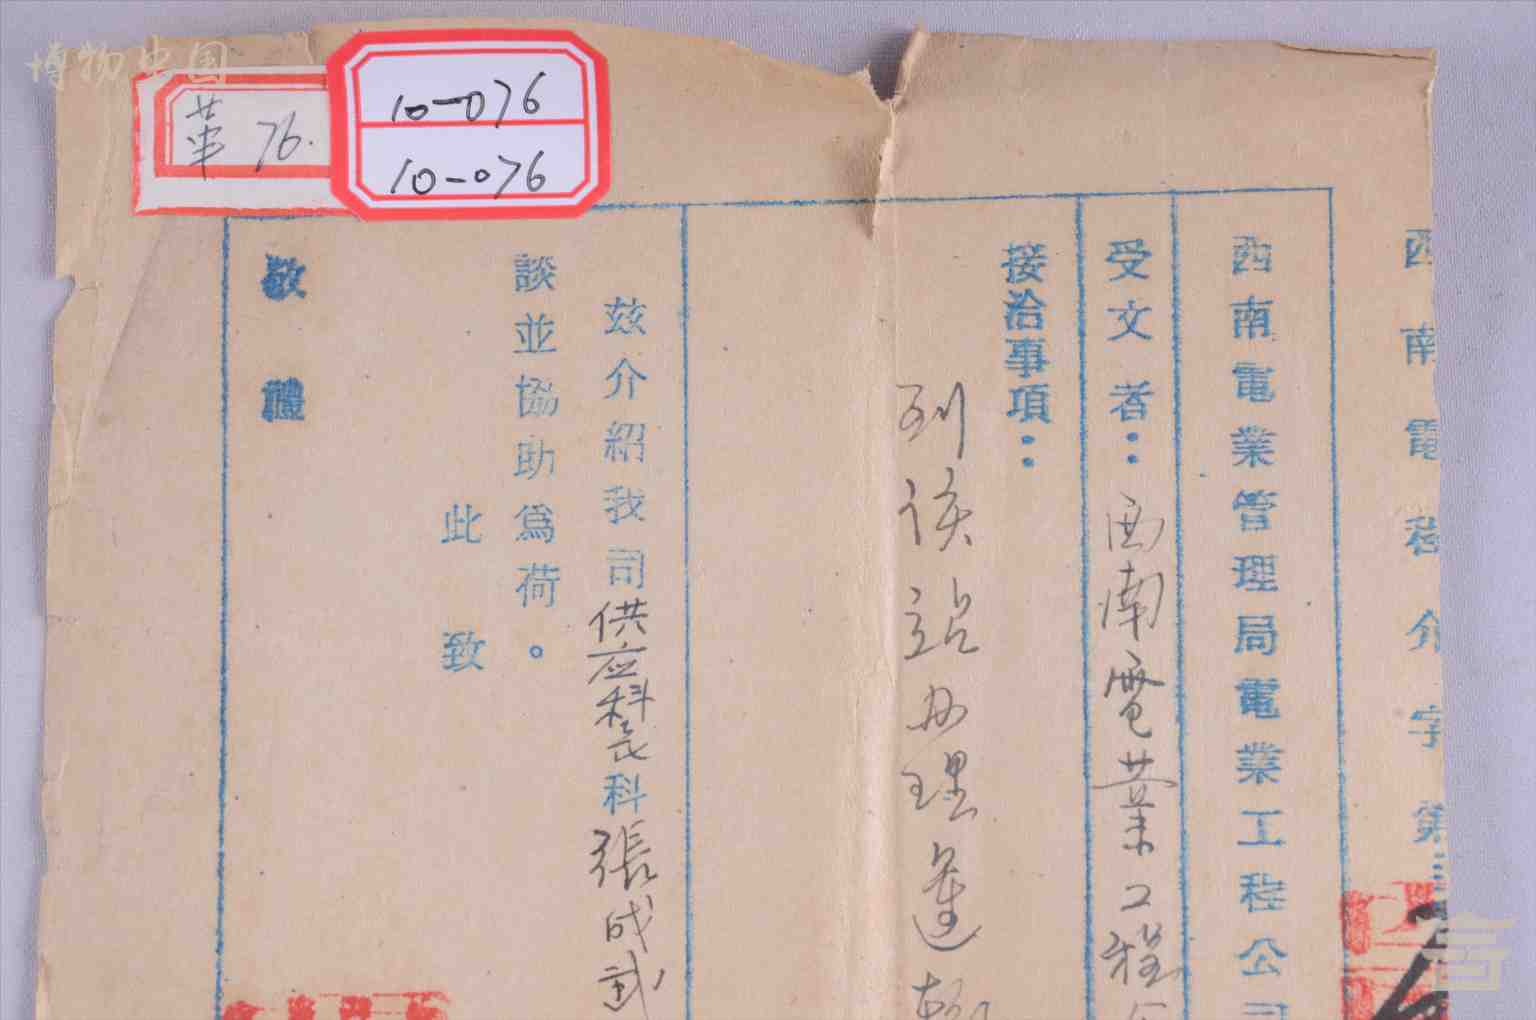 博物中国
革 76.
10-076
10-076
西南電務介字第
西南電業管理局電業工程公司
受文者：西南電業工程
接洽事項：
到该站办理運
茲介紹我司供应科長科張成武
談並協助爲荷。
此致
敬禮